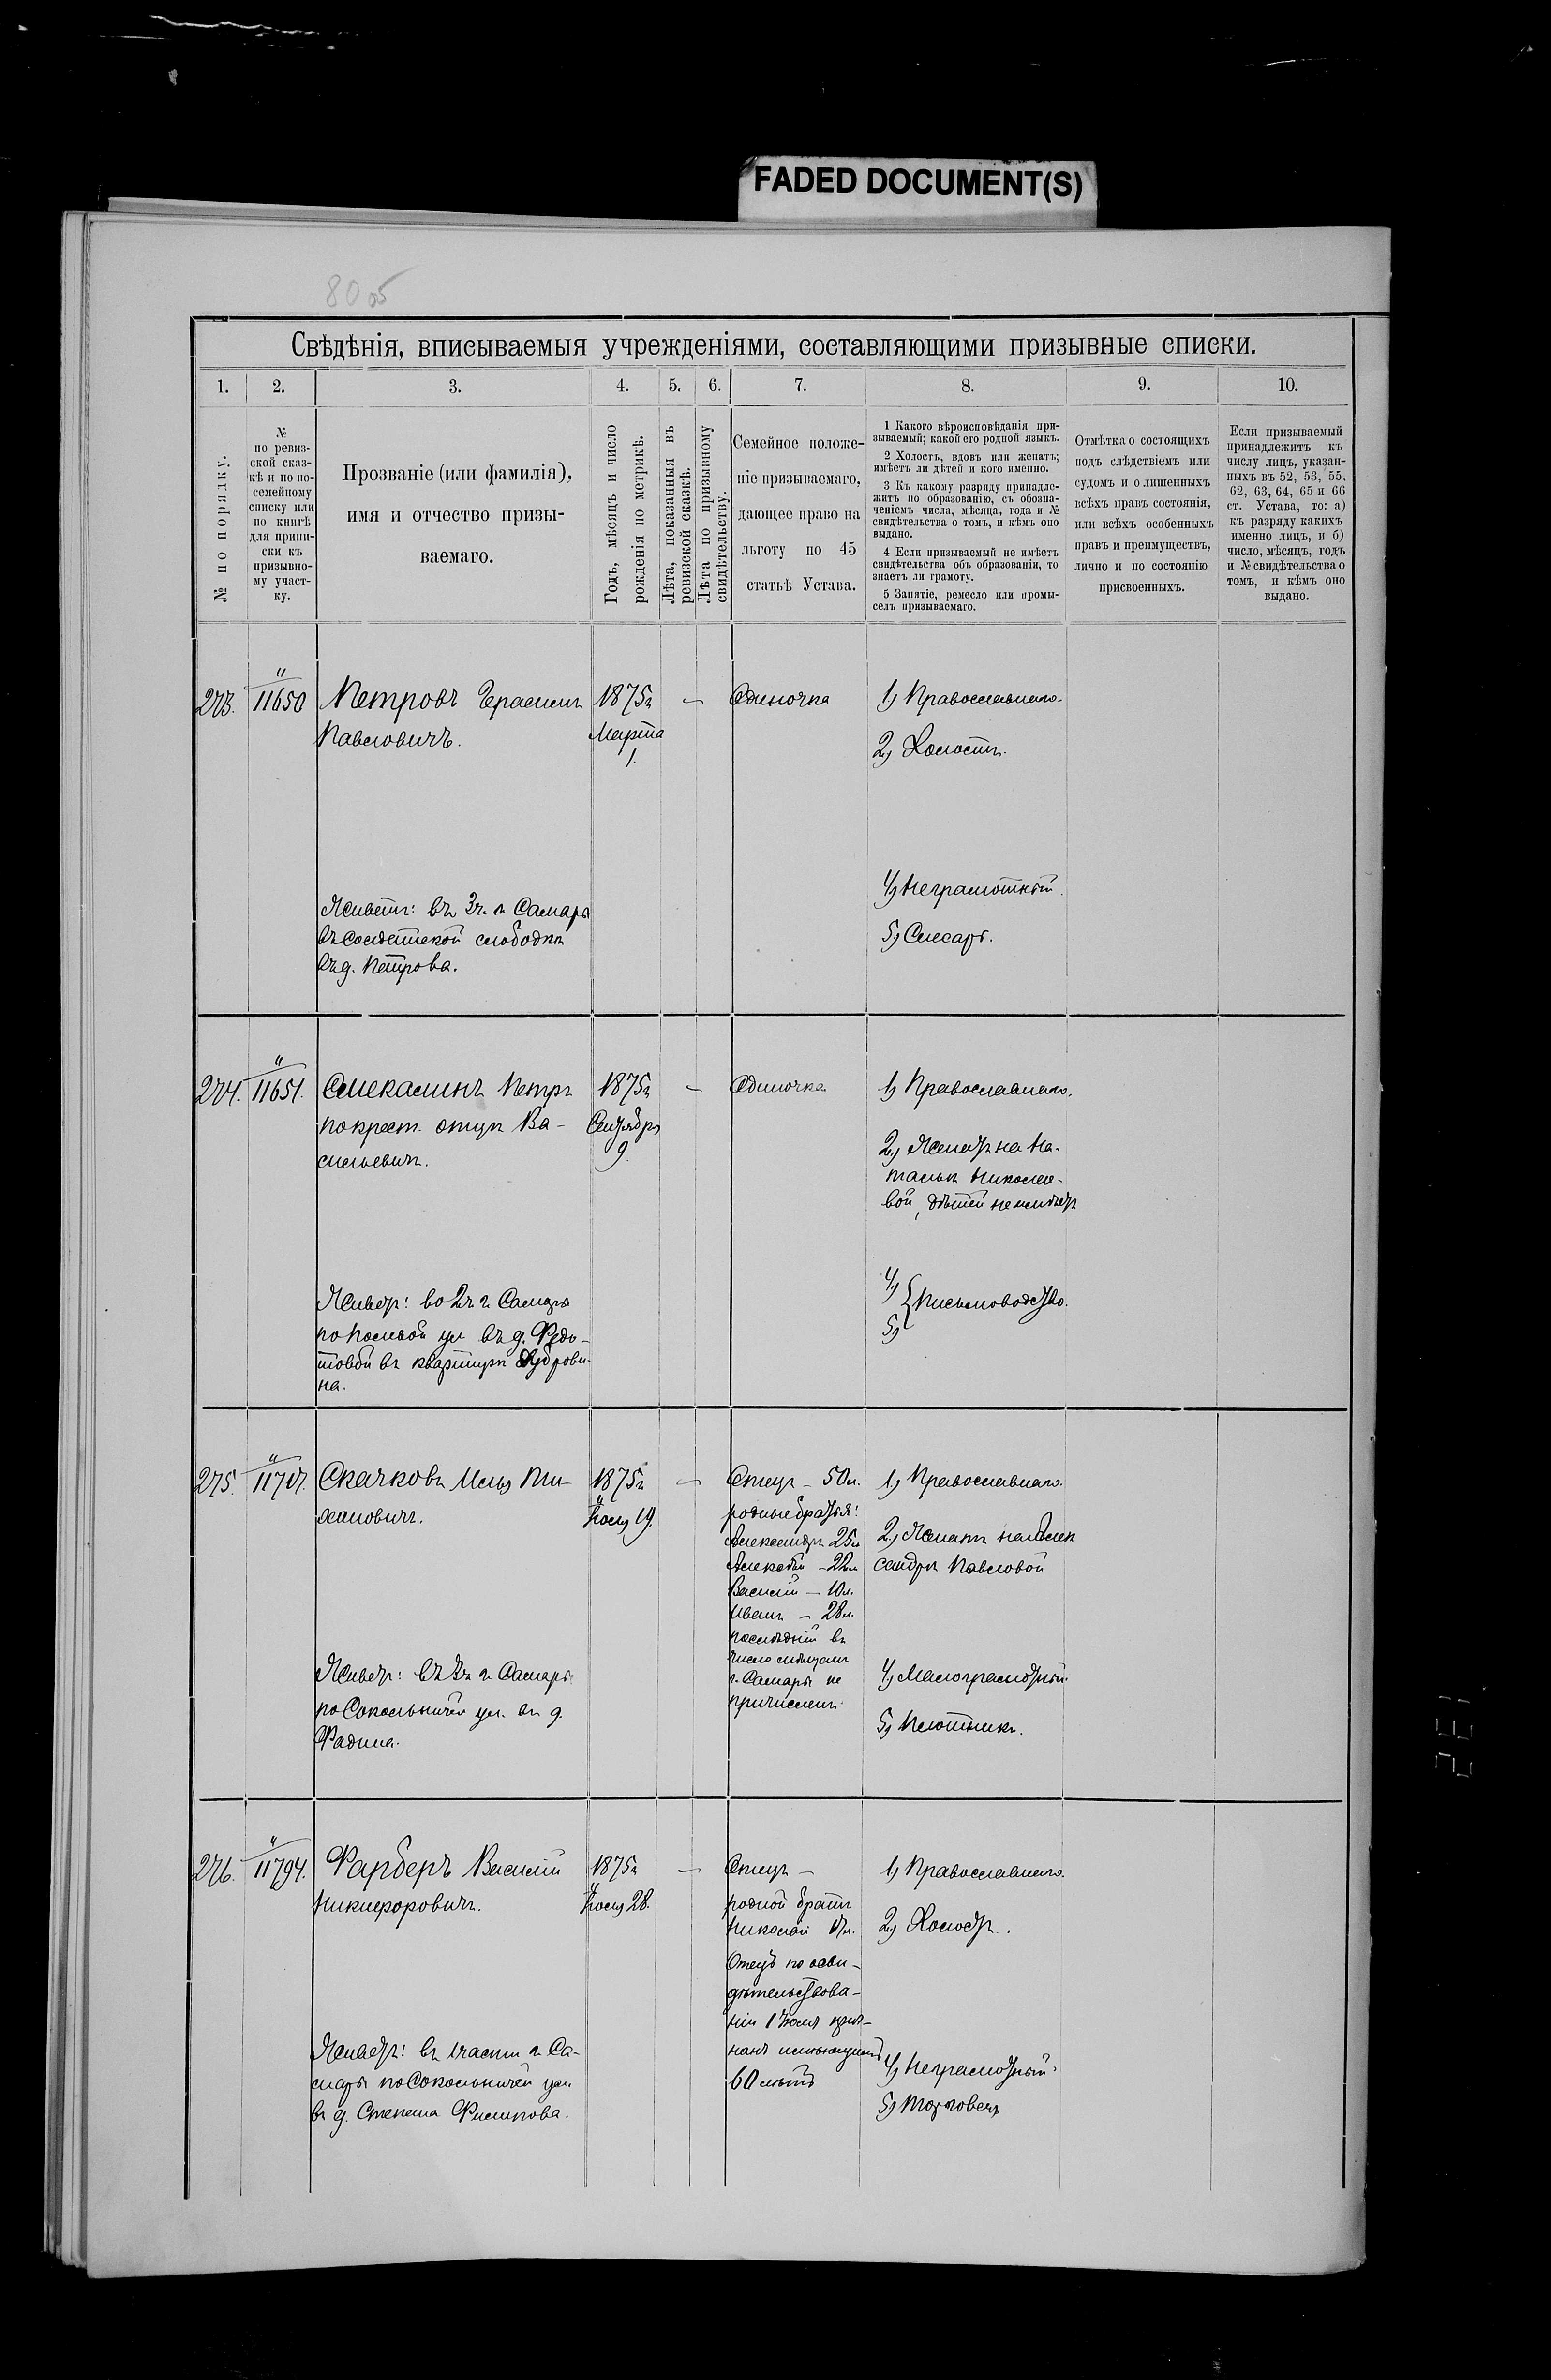 FADED DOCUMENT(S)
80 об
Свѣдѣнія, вписываемыя учрежденіями, составляющими призывные списки.
1.
2.
3.
4.
5.
6.
7.
8.
9.
10.
№ по порядку.
№
по ревиз-
ской сказ-
кѣ и по по-
семейному
списку или
по книгѣ
для припи-
ски къ
призывно-
му участ-
ку.
Прозваніе (или фамилія),
имя и отчество призы-
ваемаго.
Годъ, мѣсяцъ и число
рожденія по метрикѣ.
Лѣта, показанныя въ
ревизской сказкѣ.
Лѣта по призывному
свидѣтельству.
Семейное положе-
ніе призываемаго,
дающее право на
льготу по 45
статьѣ Устава.
1 Какого вѣроисповѣданія при-
зываемый; какой его родной языкъ.
2 Холостъ, вдовъ или женатъ;
имѣетъ ли дѣтей и кого именно.
3 Къ какому разряду принадле-
житъ по образованію, съ обозна-
ченіемъ числа, мѣсяца, года и №
свидѣтельства о томъ, и кѣмъ оно
выдано.
4 Если призываемый не имѣетъ
свидѣтельства объ образованіи, то
знаетъ ли грамоту.
5 Занятіе, ремесло или промы-
селъ призываемаго.
Отмѣтка о состоящихъ
подъ слѣдствіемъ или
судомъ и о лишенныхъ
всѣхъ правъ состоянія,
или всѣхъ особенныхъ
правъ и преимуществъ,
лично и по состоянію
присвоенныхъ.
Если призываемый
принадлежитъ къ
числу лицъ, указан-
ныхъ въ 52, 53, 55,
62, 63, 64, 65 и 66
ст. Устава, то: а)
къ разряду какихъ
именно лицъ, и б)
число, мѣсяцъ, годъ
и № свидѣтельства о
томъ, и кѣмъ оно
выдано.
273.
"
11650
Петровъ Герасимъ
Павловичъ.
Живетъ: въ 3 ч. г. Самары
въ Солдатской слободкѣ
въ д. Петрова.
1875 г.
Марта
1.
—
Одиночка
1) Православнаго.
2) Холостъ.
4) Неграмотный.
5) Слесарь.
274.
"
11651.
Смекалинъ Петръ
по крест. отцу Ва-
сильевичъ.
Живетъ: во 2 ч. г. Самары
по Полевой ул въ д. Федо-
товой въ квартирѣ Дуброви-
на.
1875 г.
Сентября
9.
—
Одиночка
1) Православнаго.
2) Женатъ на На-
тальѣ Николае-
вой, дѣтей не имѣетъ
4)
5) Письмоводство.
275.
"
Скачковъ Илья
Живетъ: въ г. Самары
по Сокольничей ул. въ д.
Фадина.
1875 г.
Іюля 19.
—
Отецъ — 50 л.
родные братья:
Александръ 25 л.
Алексѣй — 22 л.
Василій — 10 л.
Иванъ — 28 л.
послѣдній въ
число мѣщанъ
г. Самары не
причисленъ.
1) Православнаго.
2) Женатъ на Алек
сандрѣ Павловой
4) Малограмотный.
5) Плотникъ.
276.
"
11794.
Фарберъ Василій
Никифоровичъ.
Живетъ: въ части г. Са-
мары по Сокольничей ул.
въ д. Степана Филипова.
1875 г.
Іюля 28.
—
Отецъ —
родной братъ
Николай 17 л.
Отецъ по осви-
дѣтельствова-
ніи 1 Іюля приз-
нанъ имѣющимъ
60 лѣтъ
1) Православнаго.
2) Холостъ.
4) Неграмотный.
5) Торговецъ
132